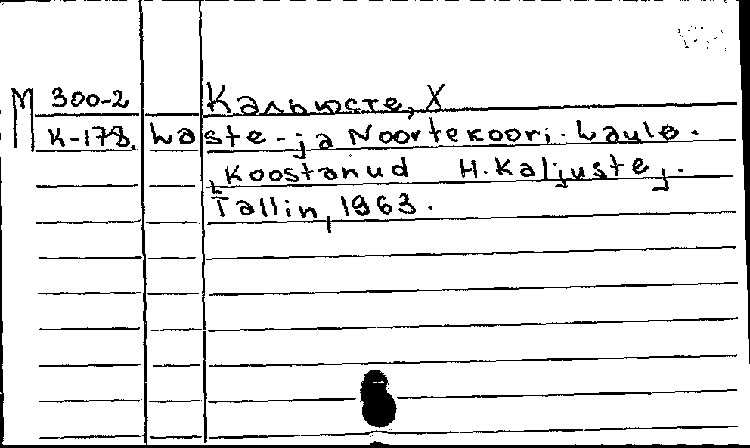 М 300-2 Кальюсте, Х
К-178. Laste-ja Noortekoori. Laulo.
Koostanud H. Kaljuste,.
Tallin, 1963.